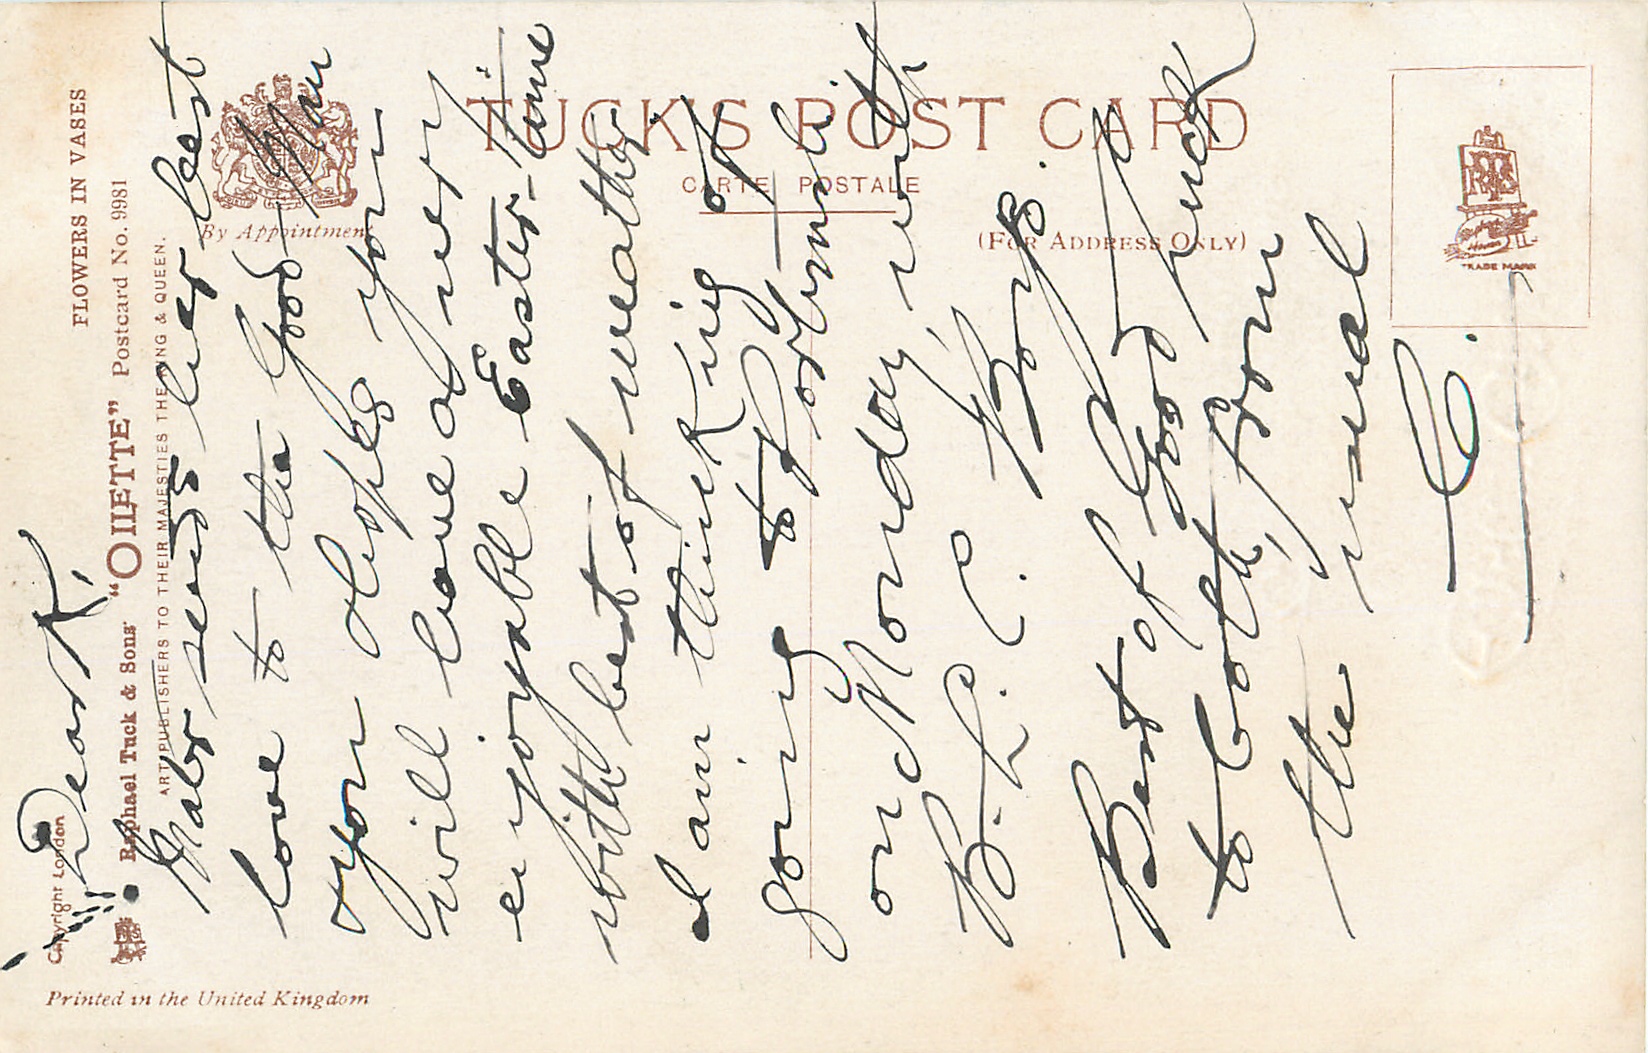 Dear K.
Mabs sends her best
love to the Good Man
you hopes you
will have a very
enjoyable Easter-time
with best of weather
I am thinking of
going to Portsmouth
on Monday, with
B.L.C. Boys.
Best of Good Luck
to both, from
the usual
C.
FLOWERS IN VASES
Raphael Tuck & Sons' "OILETTE" Postcard No. 9981
ART PUBLISHERS TO THEIR MAJESTIES THE KING & QUEEN.
Copyright London
By Appointment
TUCK'S POST CARD
CARTE POSTALE
(FOR ADDRESS ONLY)
RTS
TRADE MARK
Printed in the United Kingdom